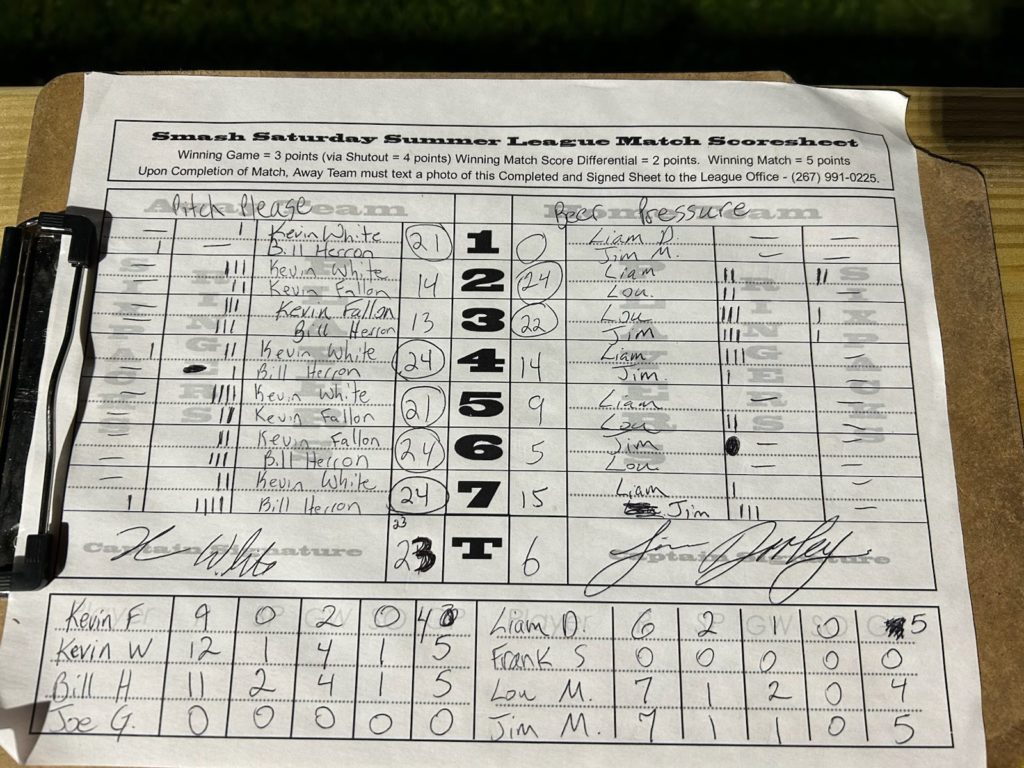 Smash Saturday Summer League Match Scoresheet
Winning Game = 3 points (via Shutout = 4 points) Winning Match Score Differential = 2 points. Winning Match = 5 points
Upon Completion of Match, Away Team must text a photo of this Completed and Signed Sheet to the League Office - (267) 991-0225.
Pitch Please Beer Pressure
Kevin White 21 1 0 Liam D.
Bill Herron Jim M.
Kevin White 14 2 24 Liam
Kevin Fallon Lou
Kevin Fallon 13 3 22 Lou
Bill Herron Jim
Kevin White 24 4 14 Liam
Bill Herron Jim
Kevin White 21 5 9 Liam
Kevin Fallon Lou
Kevin Fallon 24 6 5 Jim
Bill Herron Lou
Kevin White 24 7 15 Liam
Bill Herron Jim
23
Captain Signature 23 T 6 Captain Signature
Kevin F 9 0 2 0 4 Liam D. 6 2 1 0 5
Kevin W 12 1 4 1 5 Frank S 0 0 0 0 0
Bill H 11 2 4 1 5 Lou M. 7 1 2 0 4
Joe G. 0 0 0 0 0 Jim M. 7 1 1 0 5